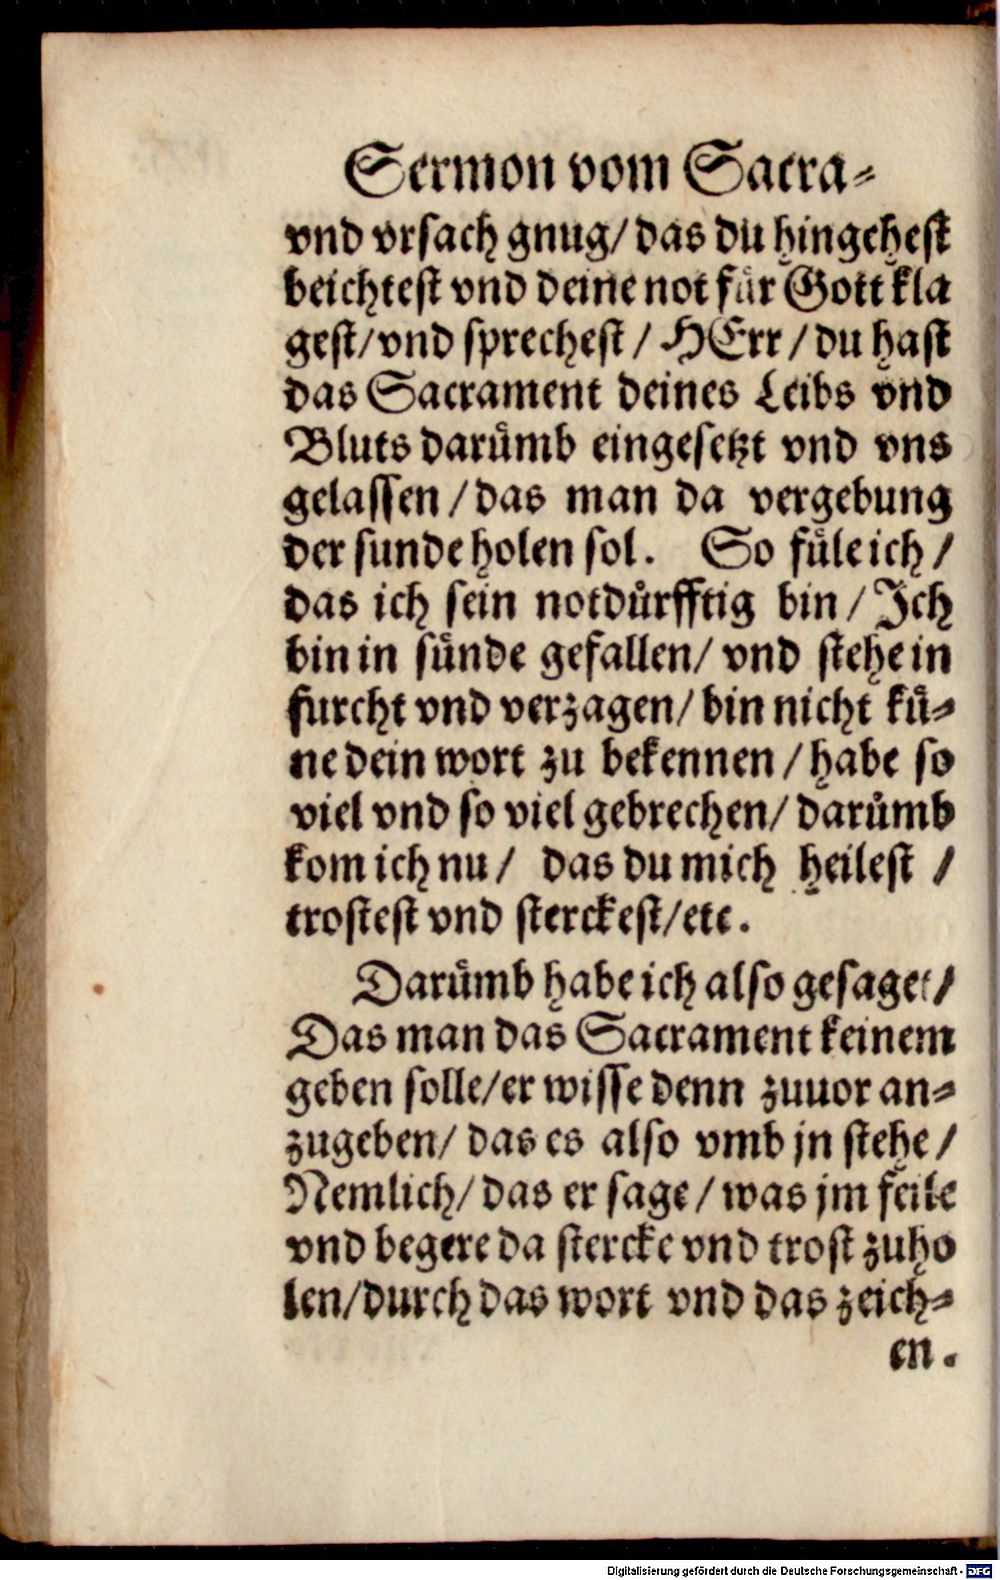 Sermon vom Sacra⸗
vnd vrsach gnug/ das du hingehest
beichtest vnd deine not für Gott kla
gest/vnd sprechest / HErr / du hast
das Sacrament deines Leibs vnd
Bluts darümb eingesetzt vnd vns
gelassen / das man da vergebung
der sunde holen sol. So füle ich /
das ich sein notdürfftig bin / Ich
bin in sünde gefallen/ vnd stehe in
furcht vnd verzagen/ bin nicht kü⸗
ne dein wort zu bekennen / habe so
viel vnd so viel gebrechen/ darümb
kom ich nu / das du mich heilest /
trostest vnd sterckest/etc.
Darümb habe ich also gesaget/
Das man das Sacrament keinem
geben solle/er wisse denn zuuor an⸗
zugeben/ das es also vmb jn stehe /
Nemlich/ das er sage / was jm feile
vnd begere da stercke vnd trost zuho
len/durch das wort vnd das zeich⸗
en.
Digitalisierung gefördert durch die Deutsche Forschungsgemeinschaft - DFG